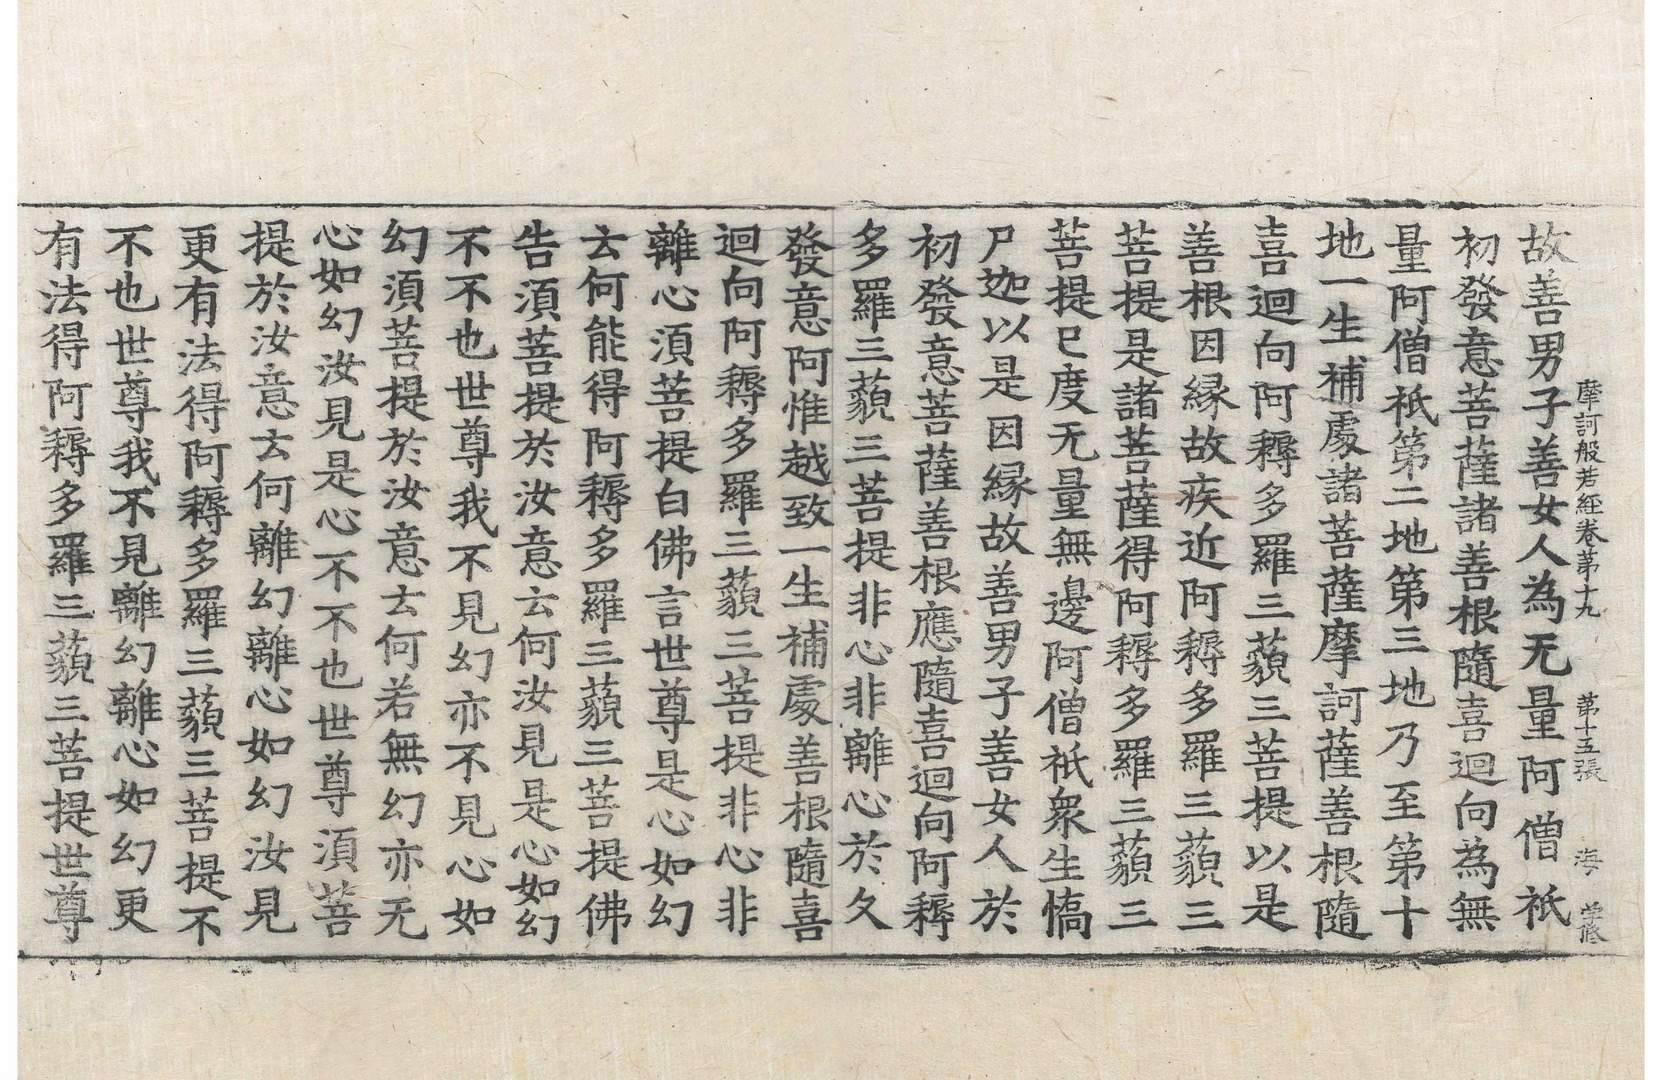 摩訶般若經卷第十九 第十五張 海
故善男子善女人為无量阿僧祇
初發意菩薩諸善根隨喜迴向為無
量阿僧祇第二地第三地乃至第十
地一生補處諸菩薩摩訶薩善根隨
喜迴向阿耨多羅三藐三菩提以是
善根因緣故疾近阿耨多羅三藐三
菩提是諸菩薩得阿耨多羅三藐三
菩提已度无量無邊阿僧祇衆生憍
尸迦以是因緣故善男子善女人於
初發意菩薩善根應隨喜迴向阿耨
多羅三藐三菩提非心非離心於久
發意阿惟越致一生補處善根隨喜
迴向阿耨多羅三藐三菩提非心非
離心須菩提白佛言世尊是心如幻
云何能得阿耨多羅三藐三菩提佛
告須菩提於汝意云何汝見是心如幻
不不也世尊我不見幻亦不見心如
幻須菩提於汝意云何若無幻亦无
心如幻汝見是心不不也世尊須菩
提於汝意云何離幻離心如幻汝見
更有法得阿耨多羅三藐三菩提不
不也世尊我不見離幻離心如幻更
有法得阿耨多羅三藐三菩提世尊